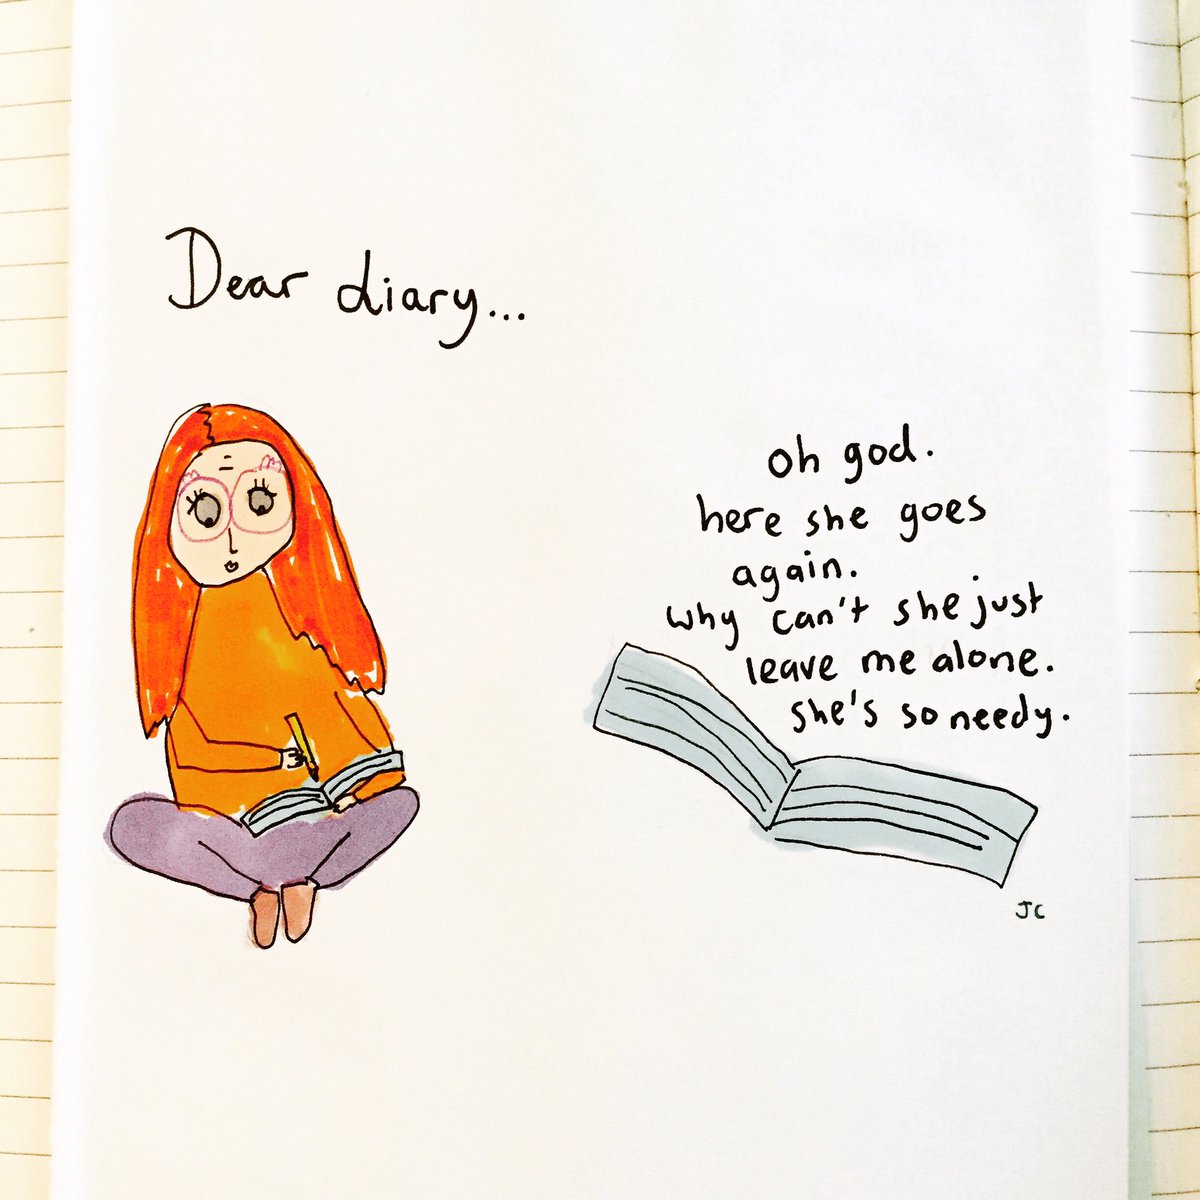 Dear diary...
oh god.
here she goes
again.
why can't she just
leave me alone.
she's so needy.
JC